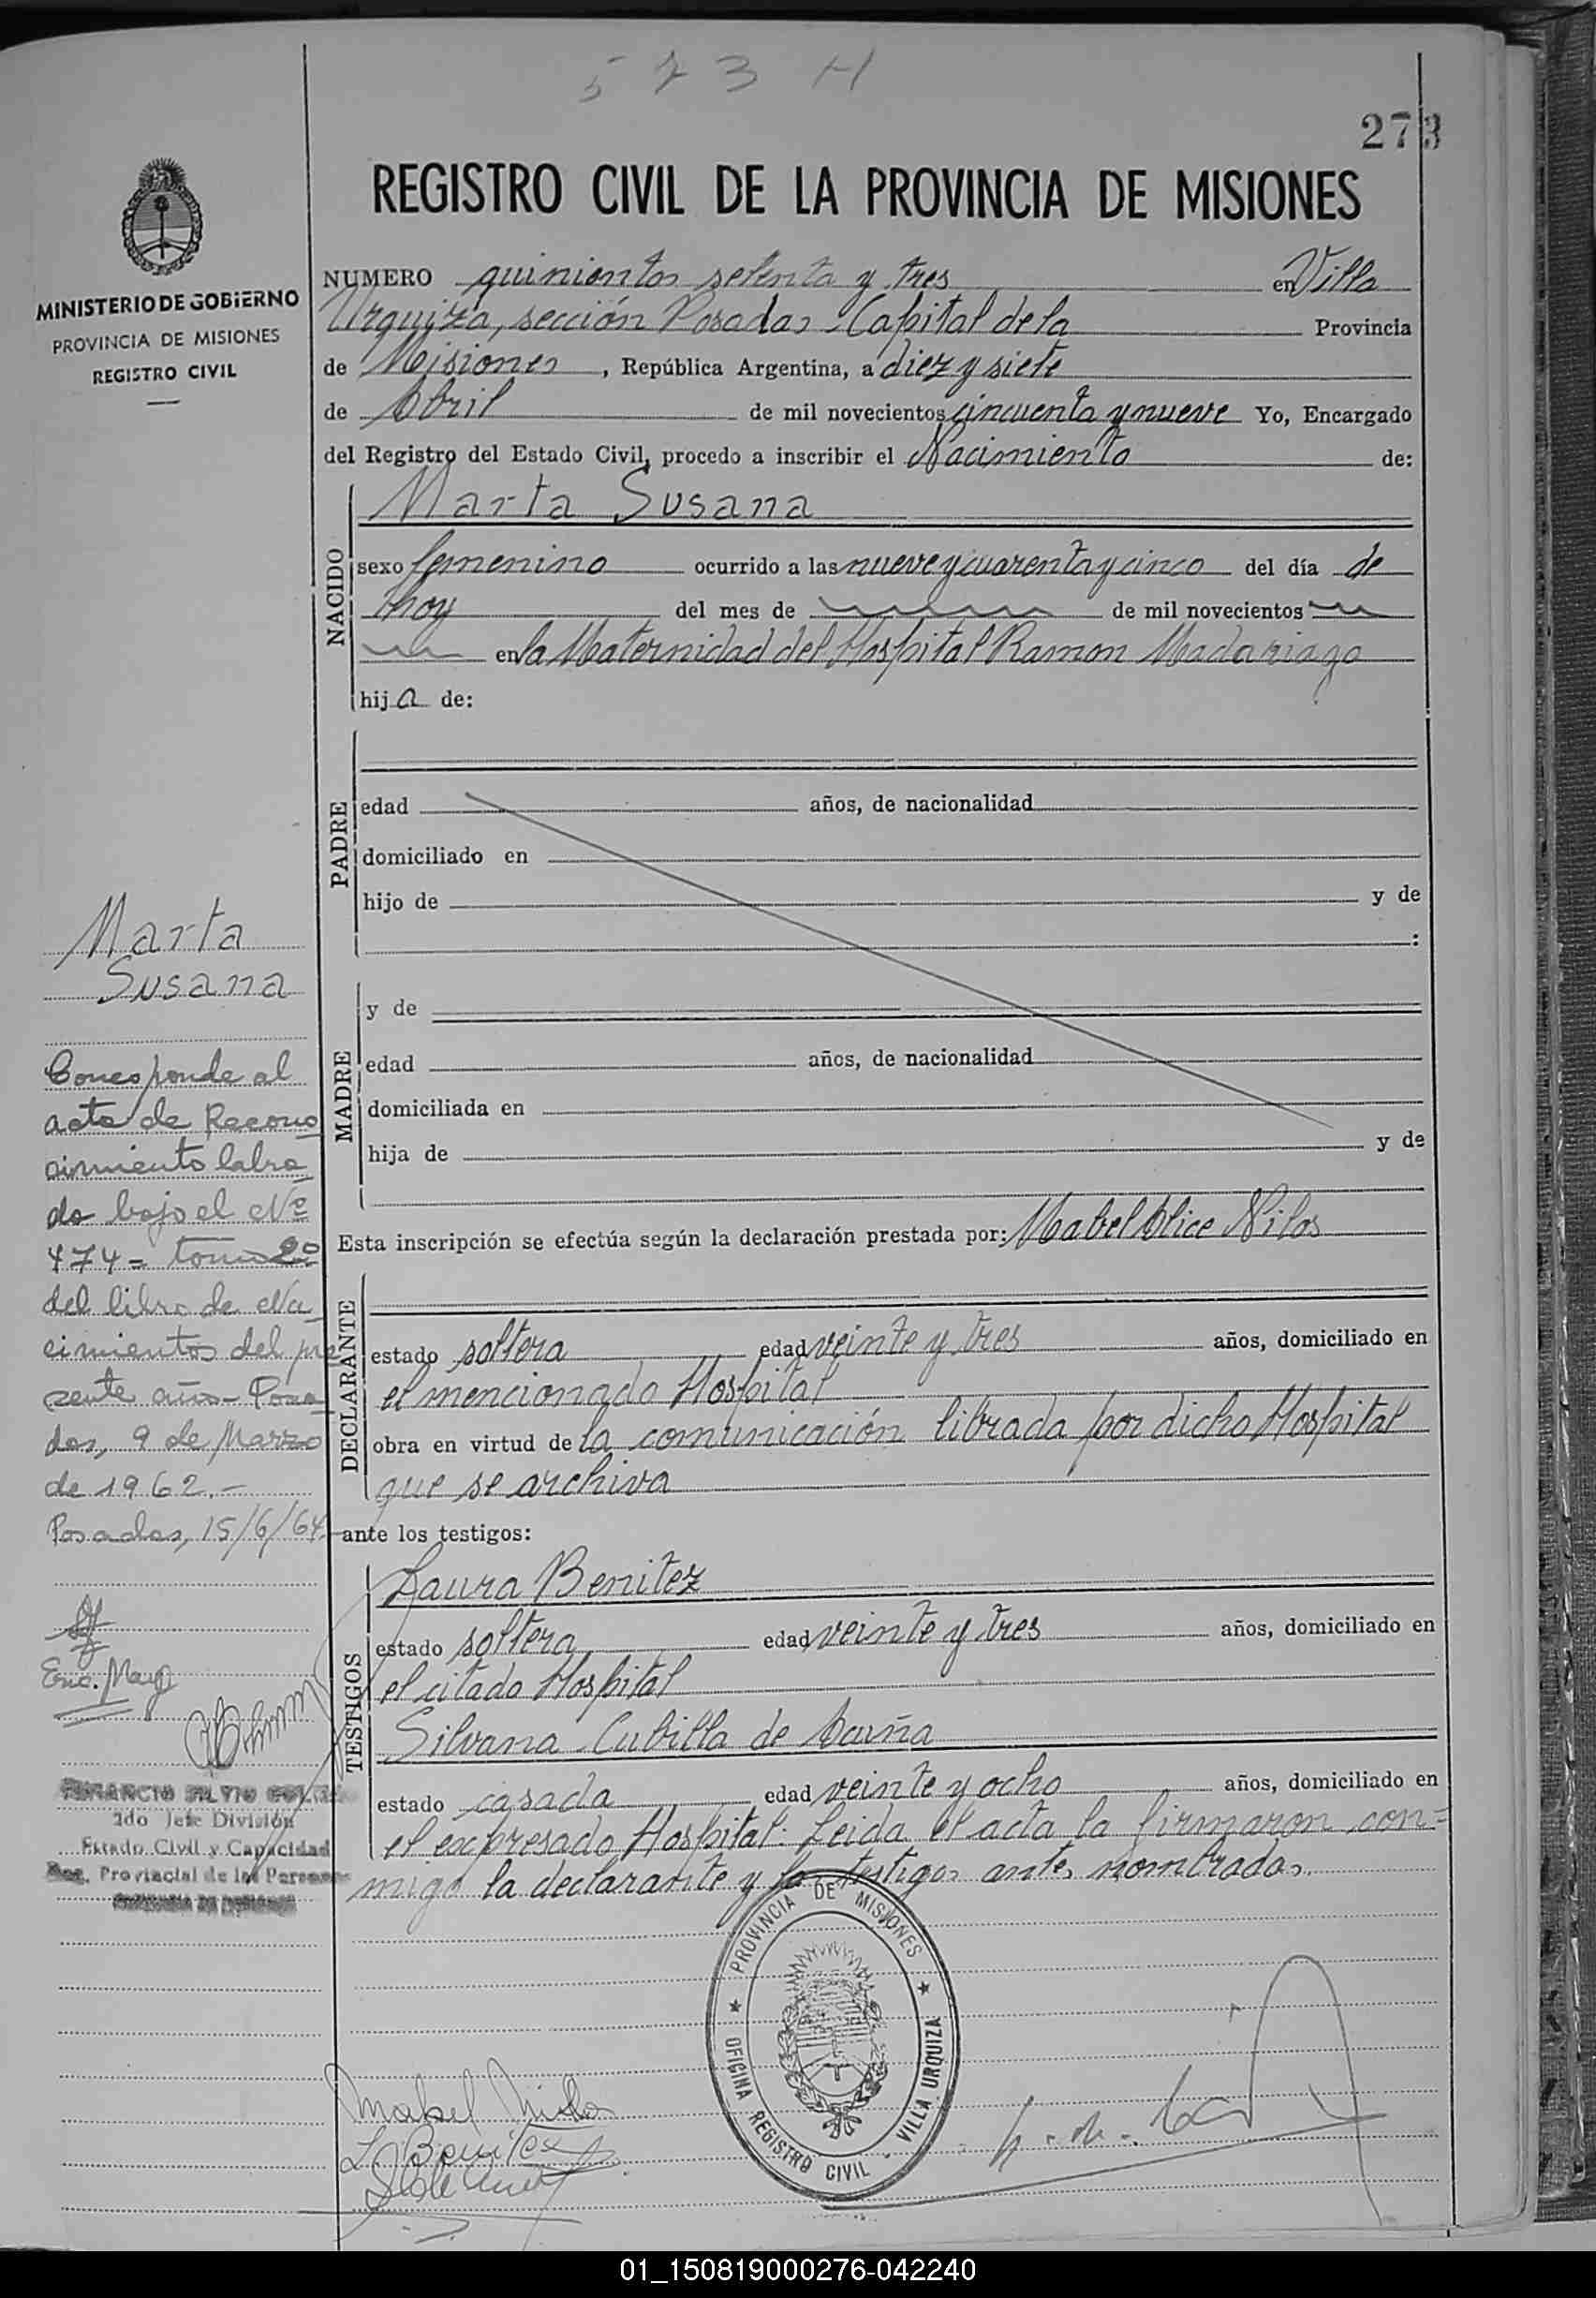 573 H
273
REGISTRO CIVIL DE LA PROVINCIA DE MISIONES
MINISTERIO DE GOBIERNO
PROVINCIA DE MISIONES
REGISTRO CIVIL
NUMERO quinientos setenta y tres en Villa
Urquiza, sección Posadas Capital de la Provincia
de Misiones, República Argentina, a diez y siete
de Abril de mil novecientos cincuenta y nueve Yo, Encargado
del Registro del Estado Civil, procedo a inscribir el Nacimiento de:
NACIDO
Marta Susana
sexo femenino ocurrido a las nueve y cuarenta y cinco del día de
hoy del mes de de mil novecientos
en la Maternidad del Hospital Ramon Madariaga
hija de:
PADRE
edad años, de nacionalidad
domiciliado en
hijo de y de
:
MADRE
y de
edad años, de nacionalidad
domiciliada en
hija de y de
Esta inscripción se efectúa según la declaración prestada por: Mabel Alice Nilos
DECLARANTE
estado soltera edad veinte y tres años, domiciliado en
el mencionado Hospital
obra en virtud de la comunicación librada por dicho Hospital
que se archiva
ante los testigos:
TESTIGOS
Laura Benitez
estado soltera edad veinte y tres años, domiciliado en
el citado Hospital
Silvana Cubilla de
estado casada edad veinte y ocho años, domiciliado en
el expresado Hospital: Leida el acta la firmaron con-
migo la declarante y los testigos antes nombrados.
Marta
Susana
Corresponde al
acta de Recono
cimiento labra
do bajo el Nº
474= tomo 2º
del libro de Na
cimientos del pre
sente año- Posa
das, 9 de Marzo
de 1962.-
Posadas, 15/6/64
Enc. Mayo
2do Jefe División
Estado Civil y Capacidad
Reg. Provincial de las Personas
PROVINCIA DE MISIONES
OFICINA REGISTRO CIVIL - VILLA URQUIZA
Mabel Nilos
L Benitez
01_150819000276-042240